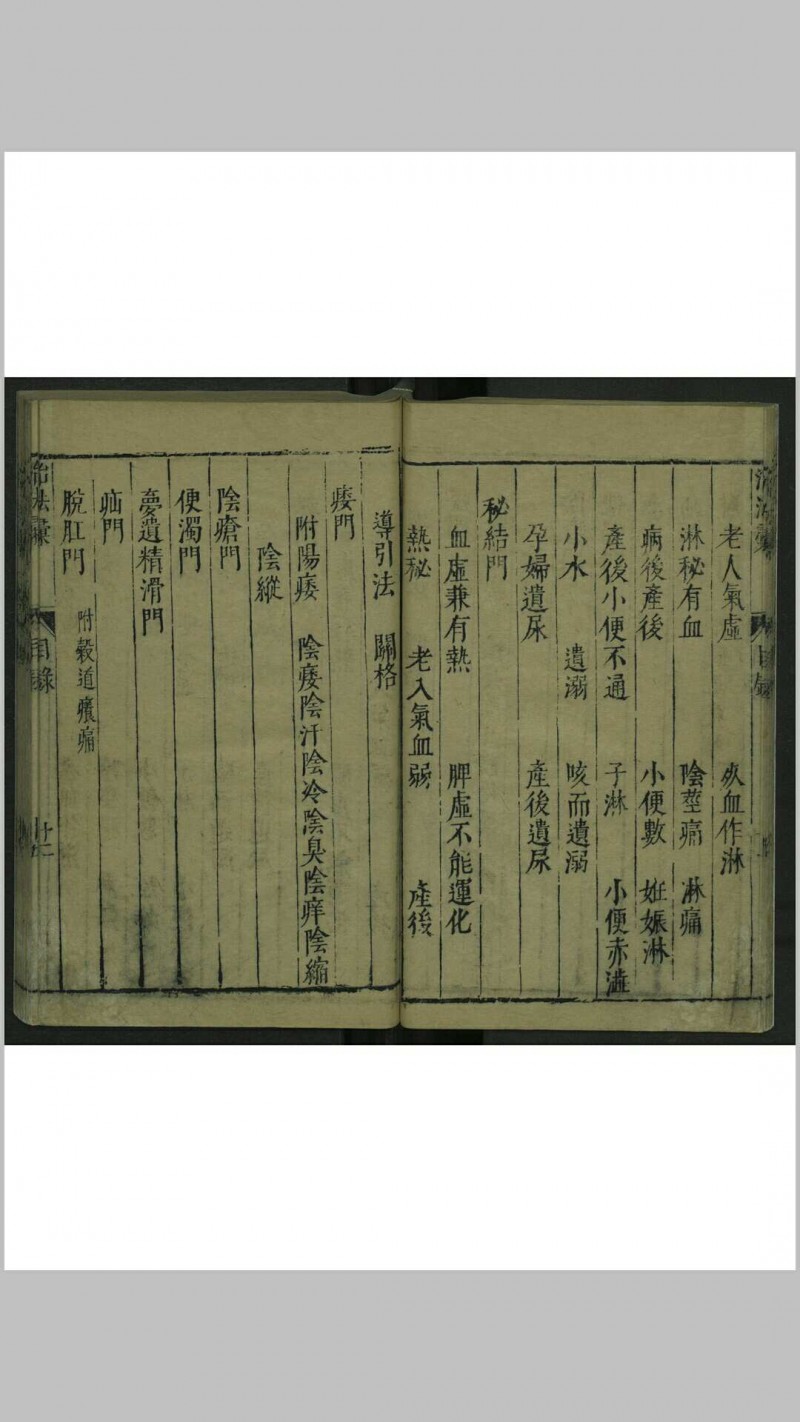 老人氣虛 死血作淋
淋秘有血 陰莖痛 淋痛
病後產後 小便數 姙娠淋
產後小便不通 子淋 小便赤澁
小水 遺溺 咳而遺溺
孕婦遺尿 產後遺尿
秘結門
血虛兼有熱 脾虛不能運化
熱秘 老人氣血弱 產後
導引法 關格
痿門
附陽痿 陰痿陰汗陰冷陰臭陰痒陰縮
陰縱
陰瘡門
便濁門
夢遺精滑門
疝門
脫肛門 附穀道癢痛
治法彙 目錄 廿二